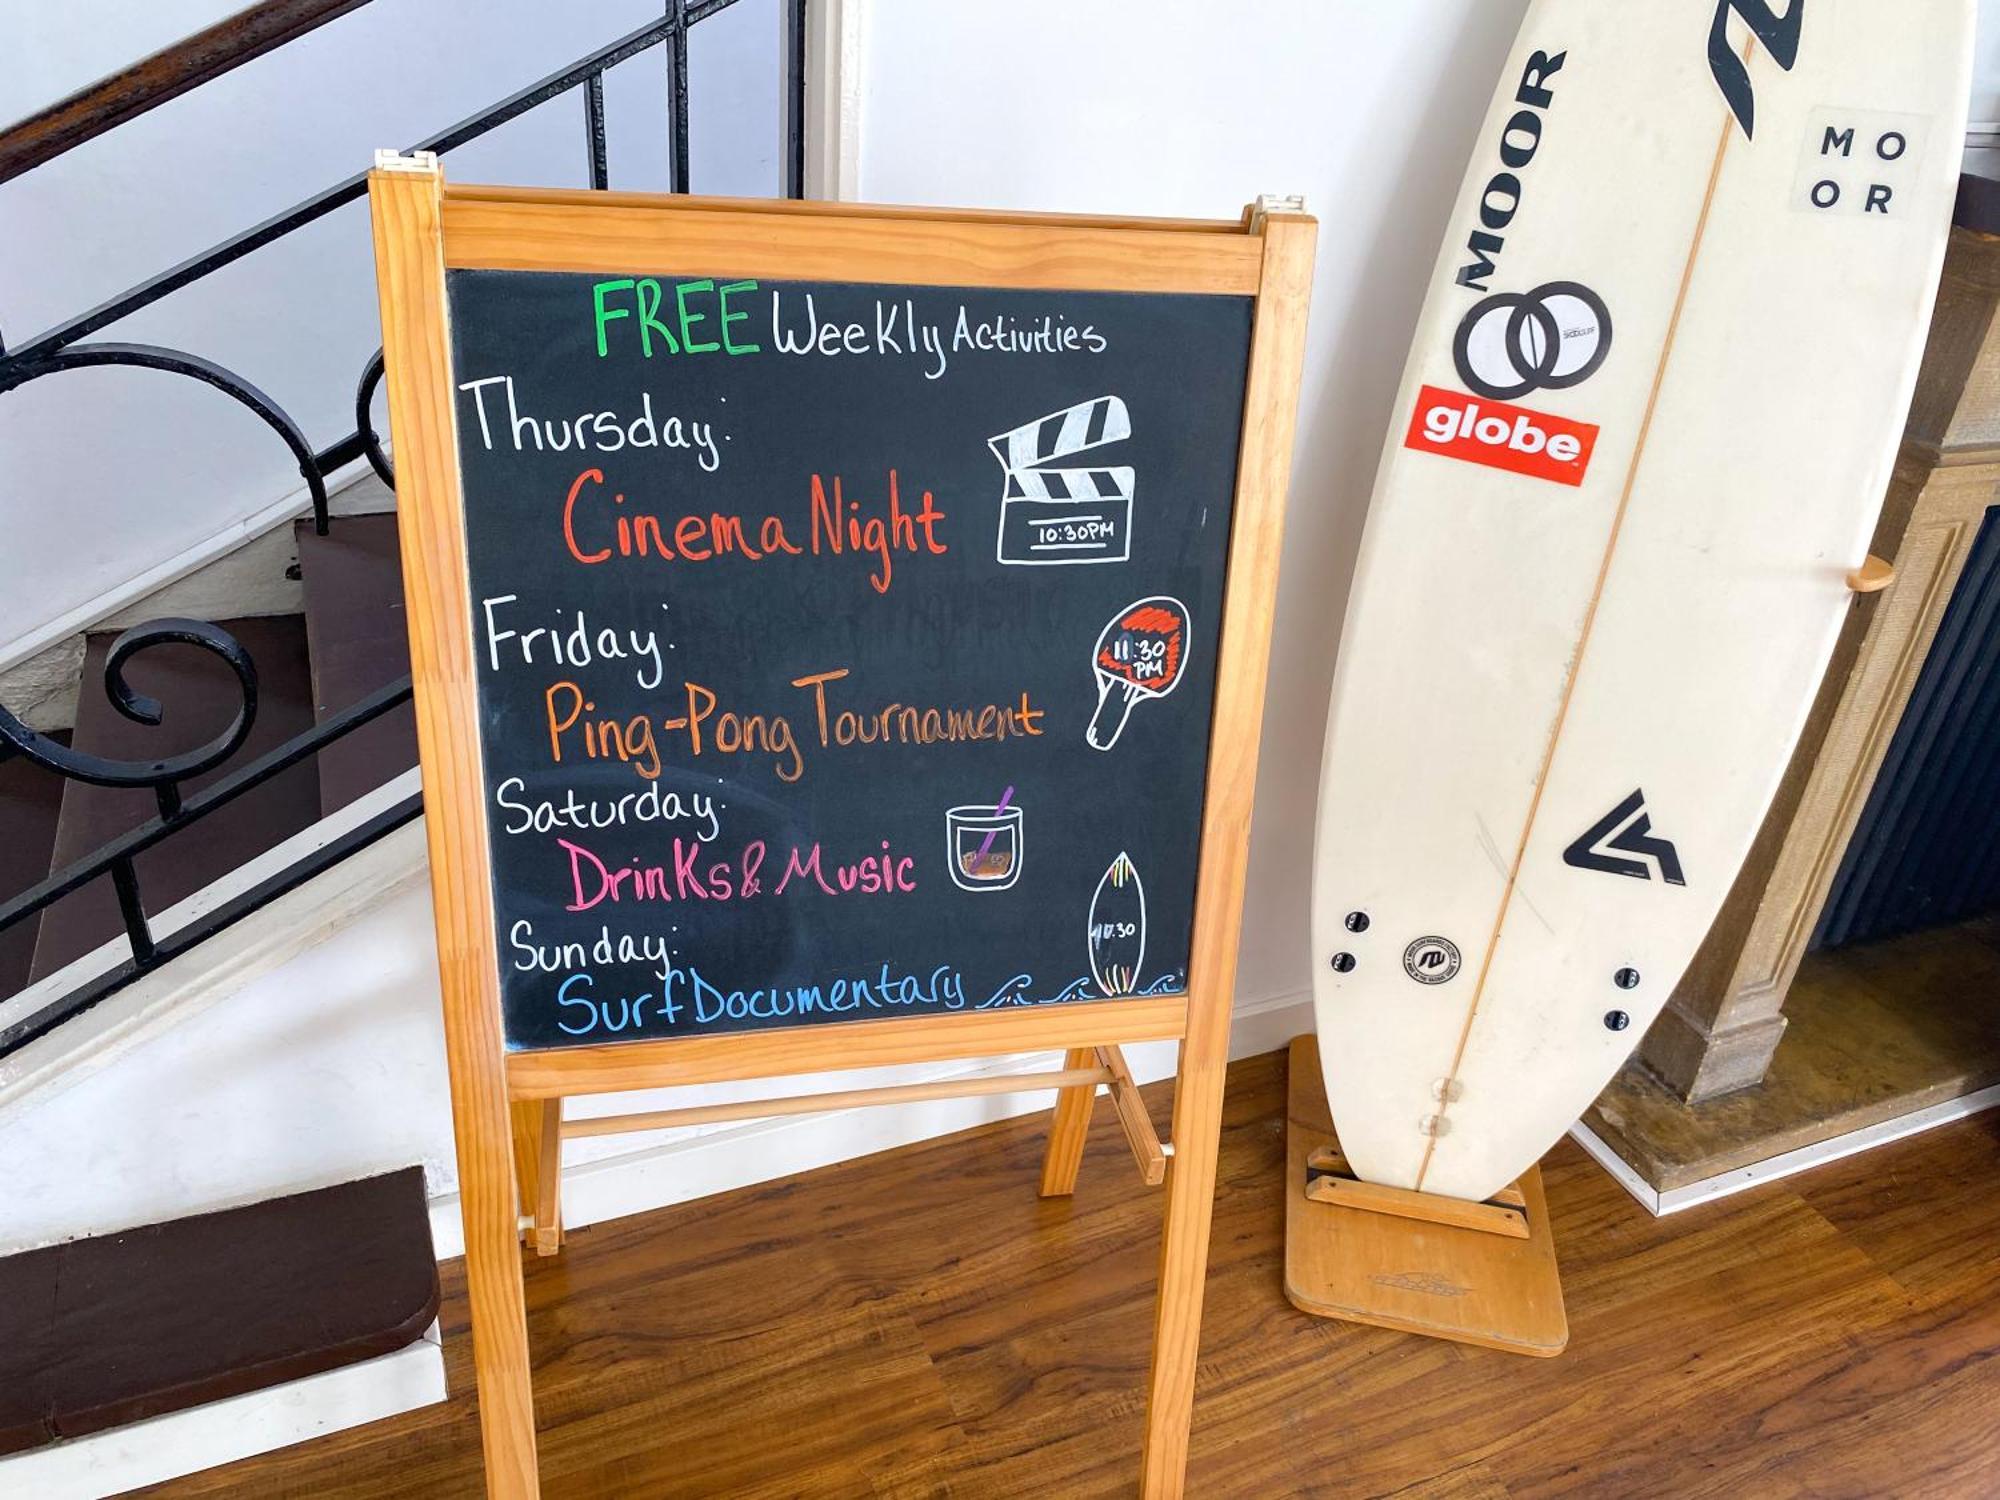 FREE Weekly Activities
Thursday:
Cinema Night
10:30PM
Friday:
Ping-Pong Tournament
11:30
PM
Saturday:
Drinks & Music
Sunday:
Surf Documentary
MOOR
M O
O R
globe